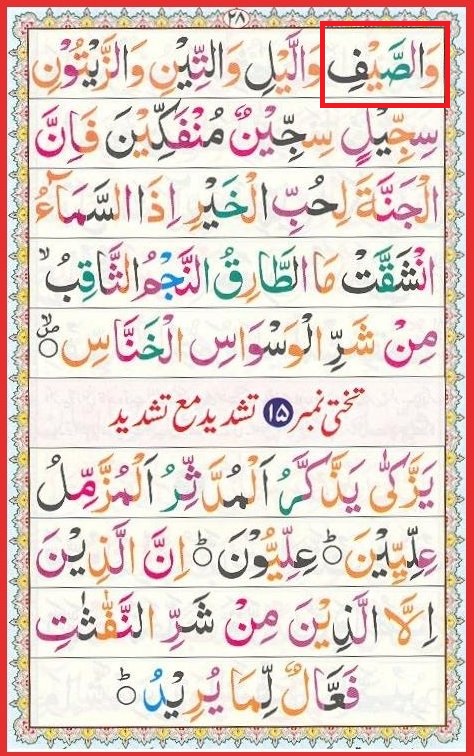 ٢٨
وَالصَّيْفِ وَالَّيْلِ وَالتِّيْنِ وَالزَّيْتُوْنِ
سِجِّيْلٍ سِجِّيْنٌ مُنْفَكِّيْنَ فَاِنَّ
الْجَنَّةَ لِحُبِّ الْخَيْرِ اِذَا السَّمَآءُ
انْشَقَّتْ مَا الطَّارِقُ النَّجْمُ الثَّاقِبُ ۙ
مِنْ شَرِّ الْوَسْوَاسِ الْخَنَّاسِ ۝
تختی نمبر ۱۵ تشدید مع تشدید
يَزَّكّٰى يَذَّكَّرُ اَلْمُدَّثِّرُ اَلْمُزَّمِّلُ
عِلِّيِّيْنَ ۝ؕ عِلِّيُّوْنَ ۝ؕ اِنَّ الَّذِيْنَ
اِلَّا الَّذِيْنَ مِنْ شَرِّ النَّفّٰثٰتِ
فَعَّالٌ لِّمَا يُرِيْدُ ۝ؕ